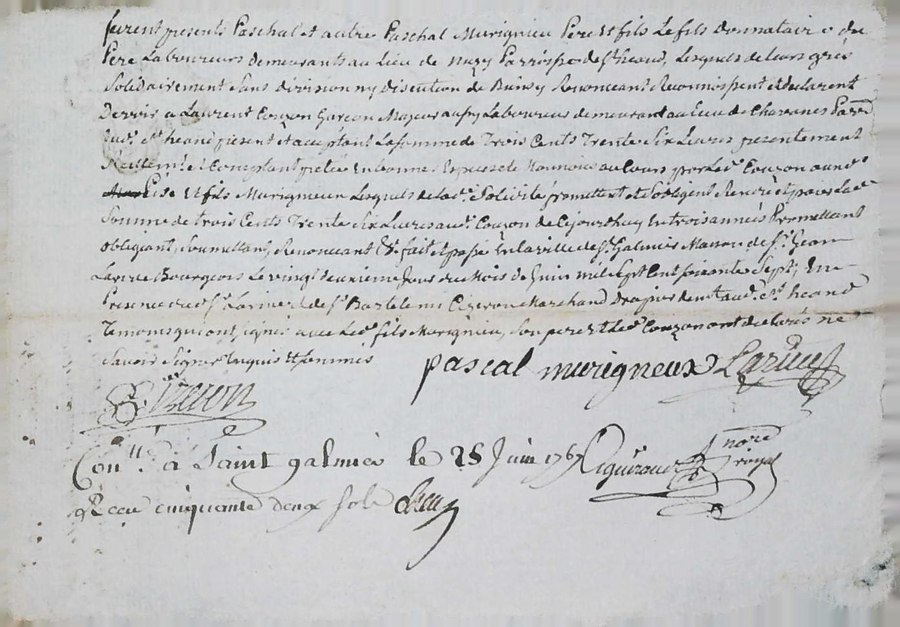 furent presents Paschal et autre Paschal Murigneu Pere et fils Le fils donnataire du
Pere Laboureurs demeurants au Lieu de Parroisse de St heand, Lesquels de leurs grés
Solidairement Sans division ny discution de Biens y Renonceant Reconnoissent et declarent
Devoir a Laurent Couzon Garcon Majeur aussy Laboureur demeurant au Lieu de Chavanes Parse
dud. St heand present et acceptant La somme de Trois Cents Trente Six Livres presentement
Reellemt et Comptant pretée en bonnes Especes de Monnoie au Cours par Led. Couzon auxds
Pere et fils Murigneu Lesquels de lad. Solidité promettent et s'obligent Rendre et payer La de
Somme de trois Cents Trente Six Livres aud. Couzon de Cejourdhuy en trois années Promettant
obligeant, soumettant, Renonceant &c fait et passé en la ville de St Galmier Maison de Sr Jean
Larue Bourgeois Le vingt deuxieme Jour du Mois de Juin mil Sept Cent soixante Sept, En
Presence dud. Sr Larue et de Sr Bartelemi Cizeron Marchand Drapier dud. St heand
Temoins qui ont signé avec Led. fils Murigneu, Son pere et Led. Couzon ont declarés ne
Savoir Signer Enquis et sommés
pascal murigneux Larue
Cizeron
Conllé a Saint galmier le 25 Juin 1767 nore royal
Recu cinquante deux sols